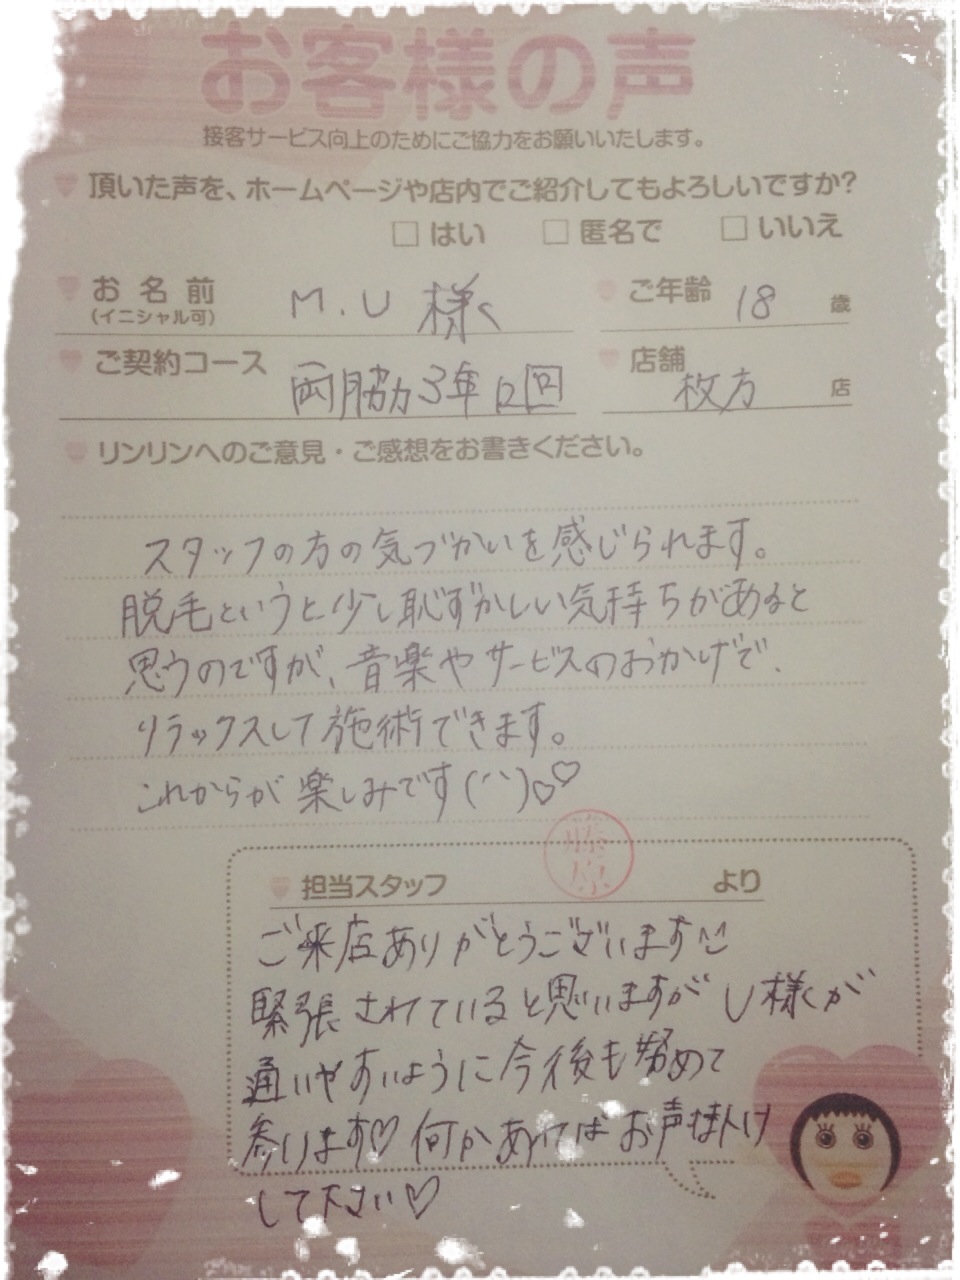 お客様の声
接客サービス向上のためにご協力をお願いいたします。
頂いた声を、ホームページや店内でご紹介してもよろしいですか?
□ はい □ 匿名で □ いいえ
お名前 M.U 様 ご年齢 18 歳
(イニシャル可)
ご契約コース 両脇3年12回 店舗 枚方 店
リンリンへのご意見・ご感想をお書きください。
スタッフの方の気づかいを感じられます。
脱毛というと少し恥ずかしい気持ちがあると
思うのですが、音楽やサービスのおかげで、
リラックスして施術できます。
これからが楽しみです(^^)♡♡
担当スタッフ 藤原 より
ご来店ありがとうございます
緊張されていると思いますがU様が
通いやすいように今後も努めて
参ります♡何かあればお声掛け
して下さい♡